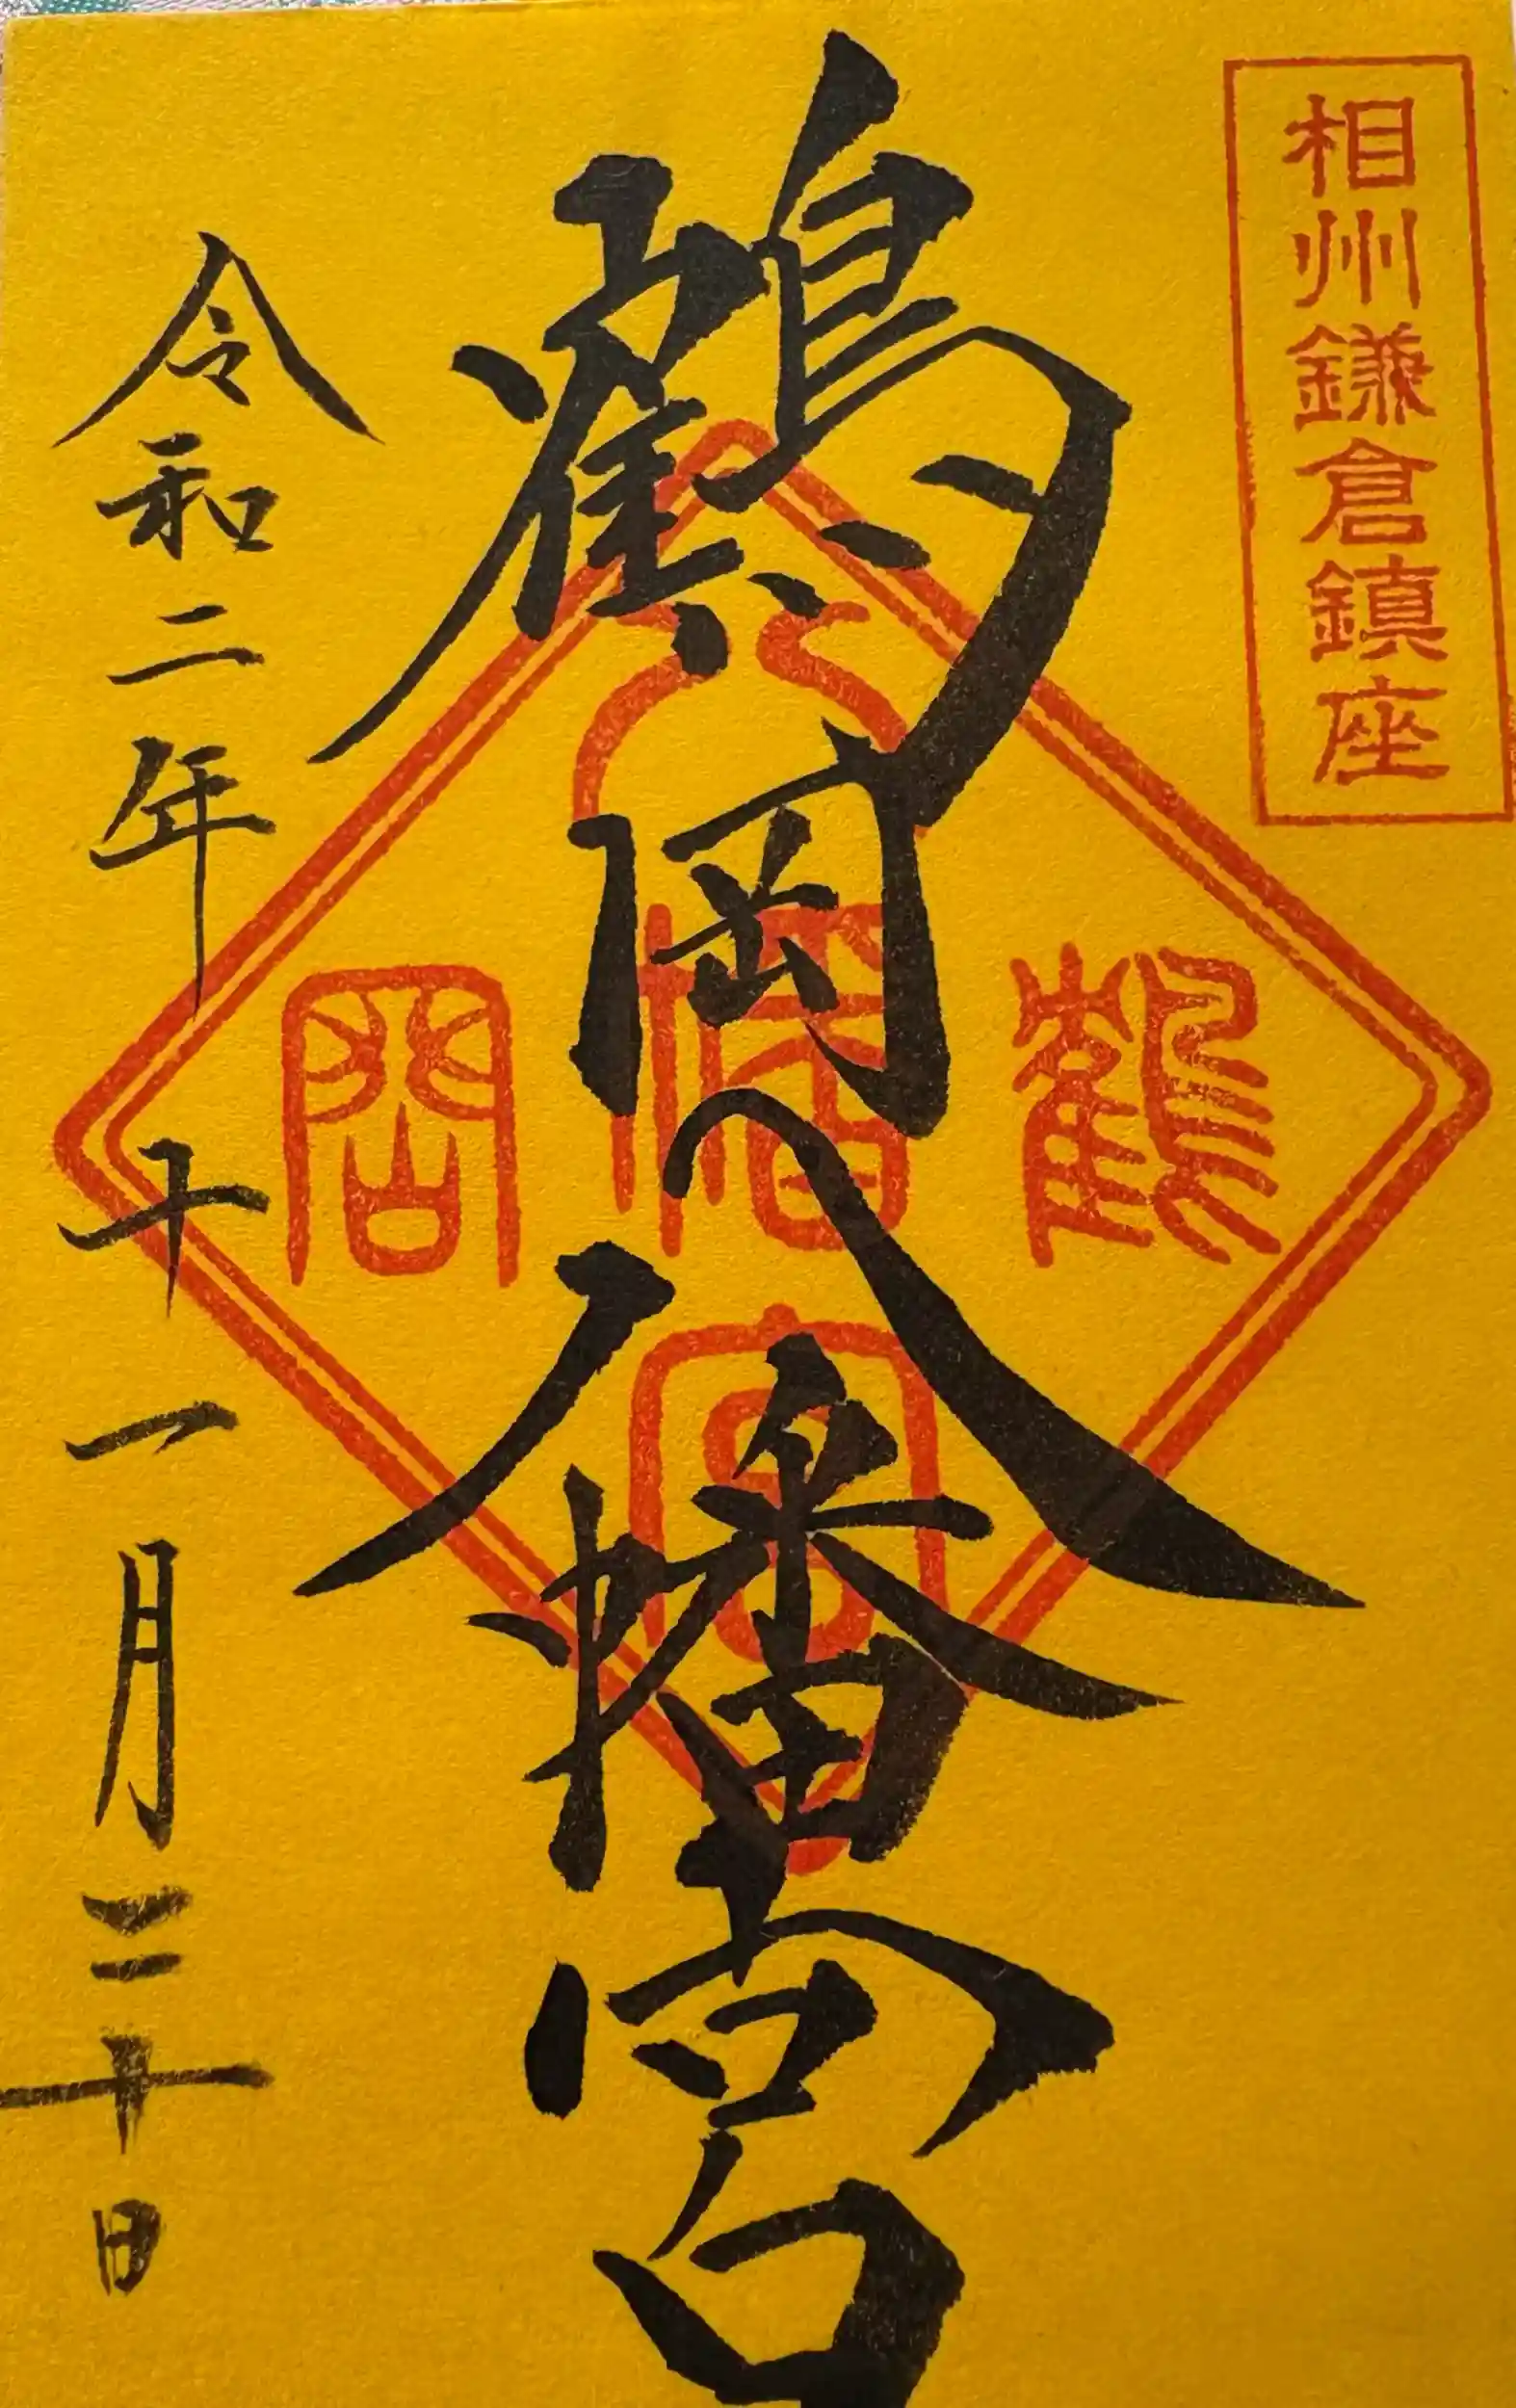 相州鎌倉鎮座
鶴岡八幡宮
鶴岡八幡宮
令和二年十一月三十日